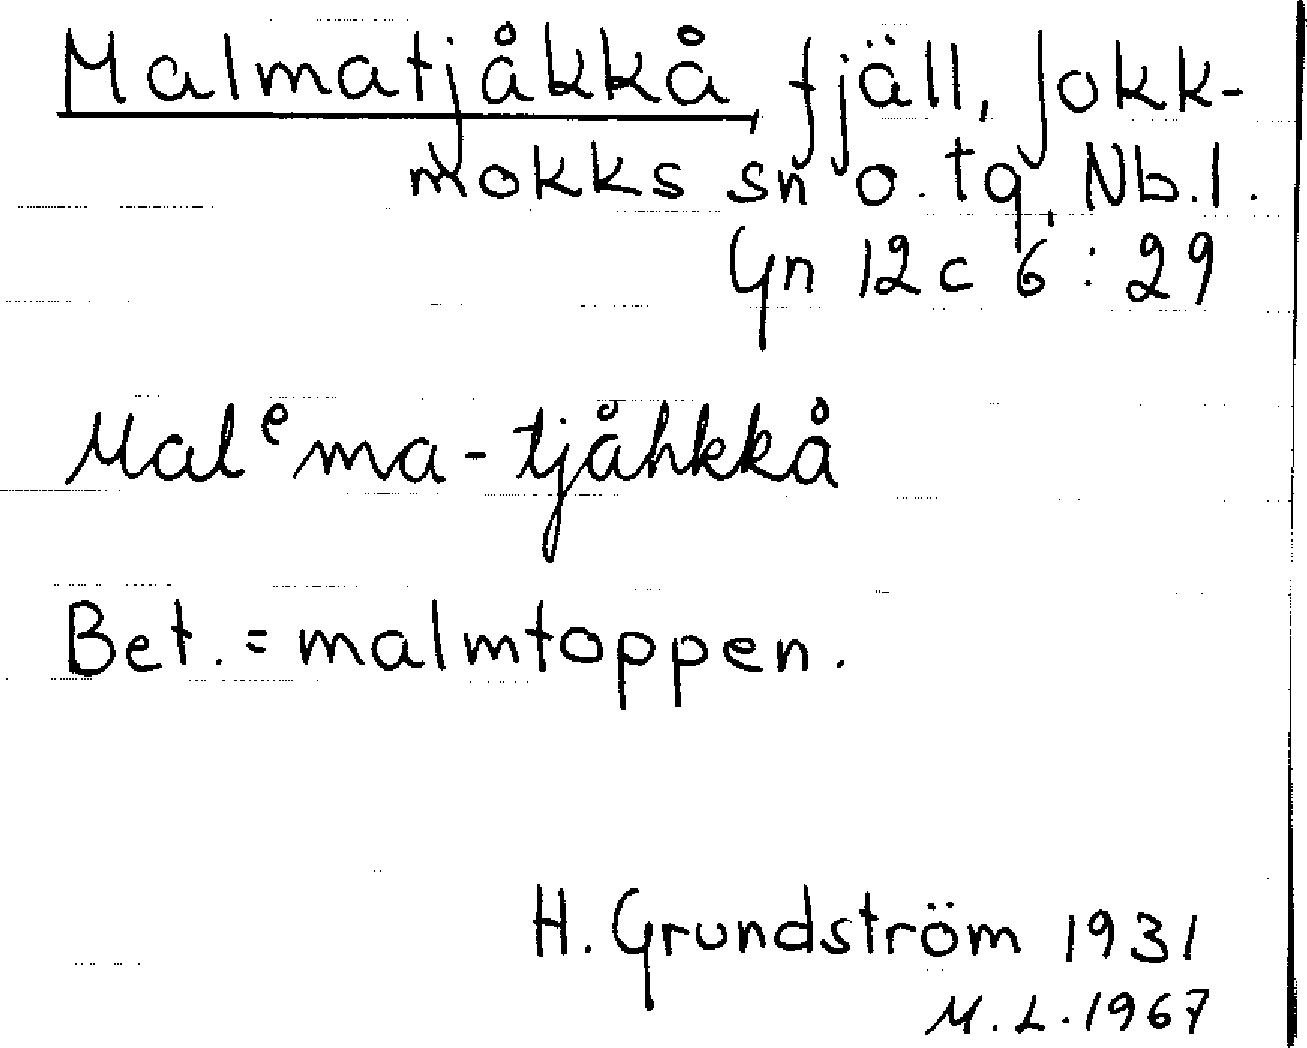 Malmatjåkkå, fjäll, Jokk-
mokks sn o. tg, Nb.l.
Gn 12 c 6 : 29
Malᵉma-tjåhkkå
Bet. = malmtoppen.
H. Grundström 1931
M. L. 1967